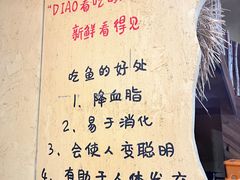 "DIAO看吃
新鲜看得见
吃鱼的好处
1、降血脂
2、易于消化
3、会使人变聪明
4、有助于人体发育